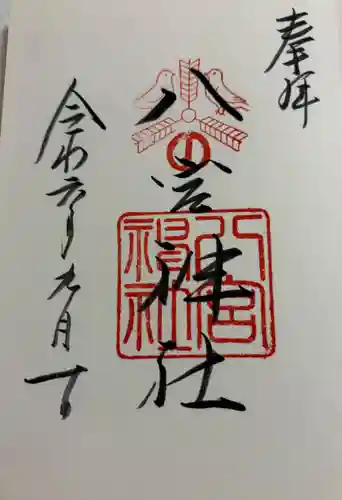 奉拝
八宮神社
八宮神社
令和六年九月一日